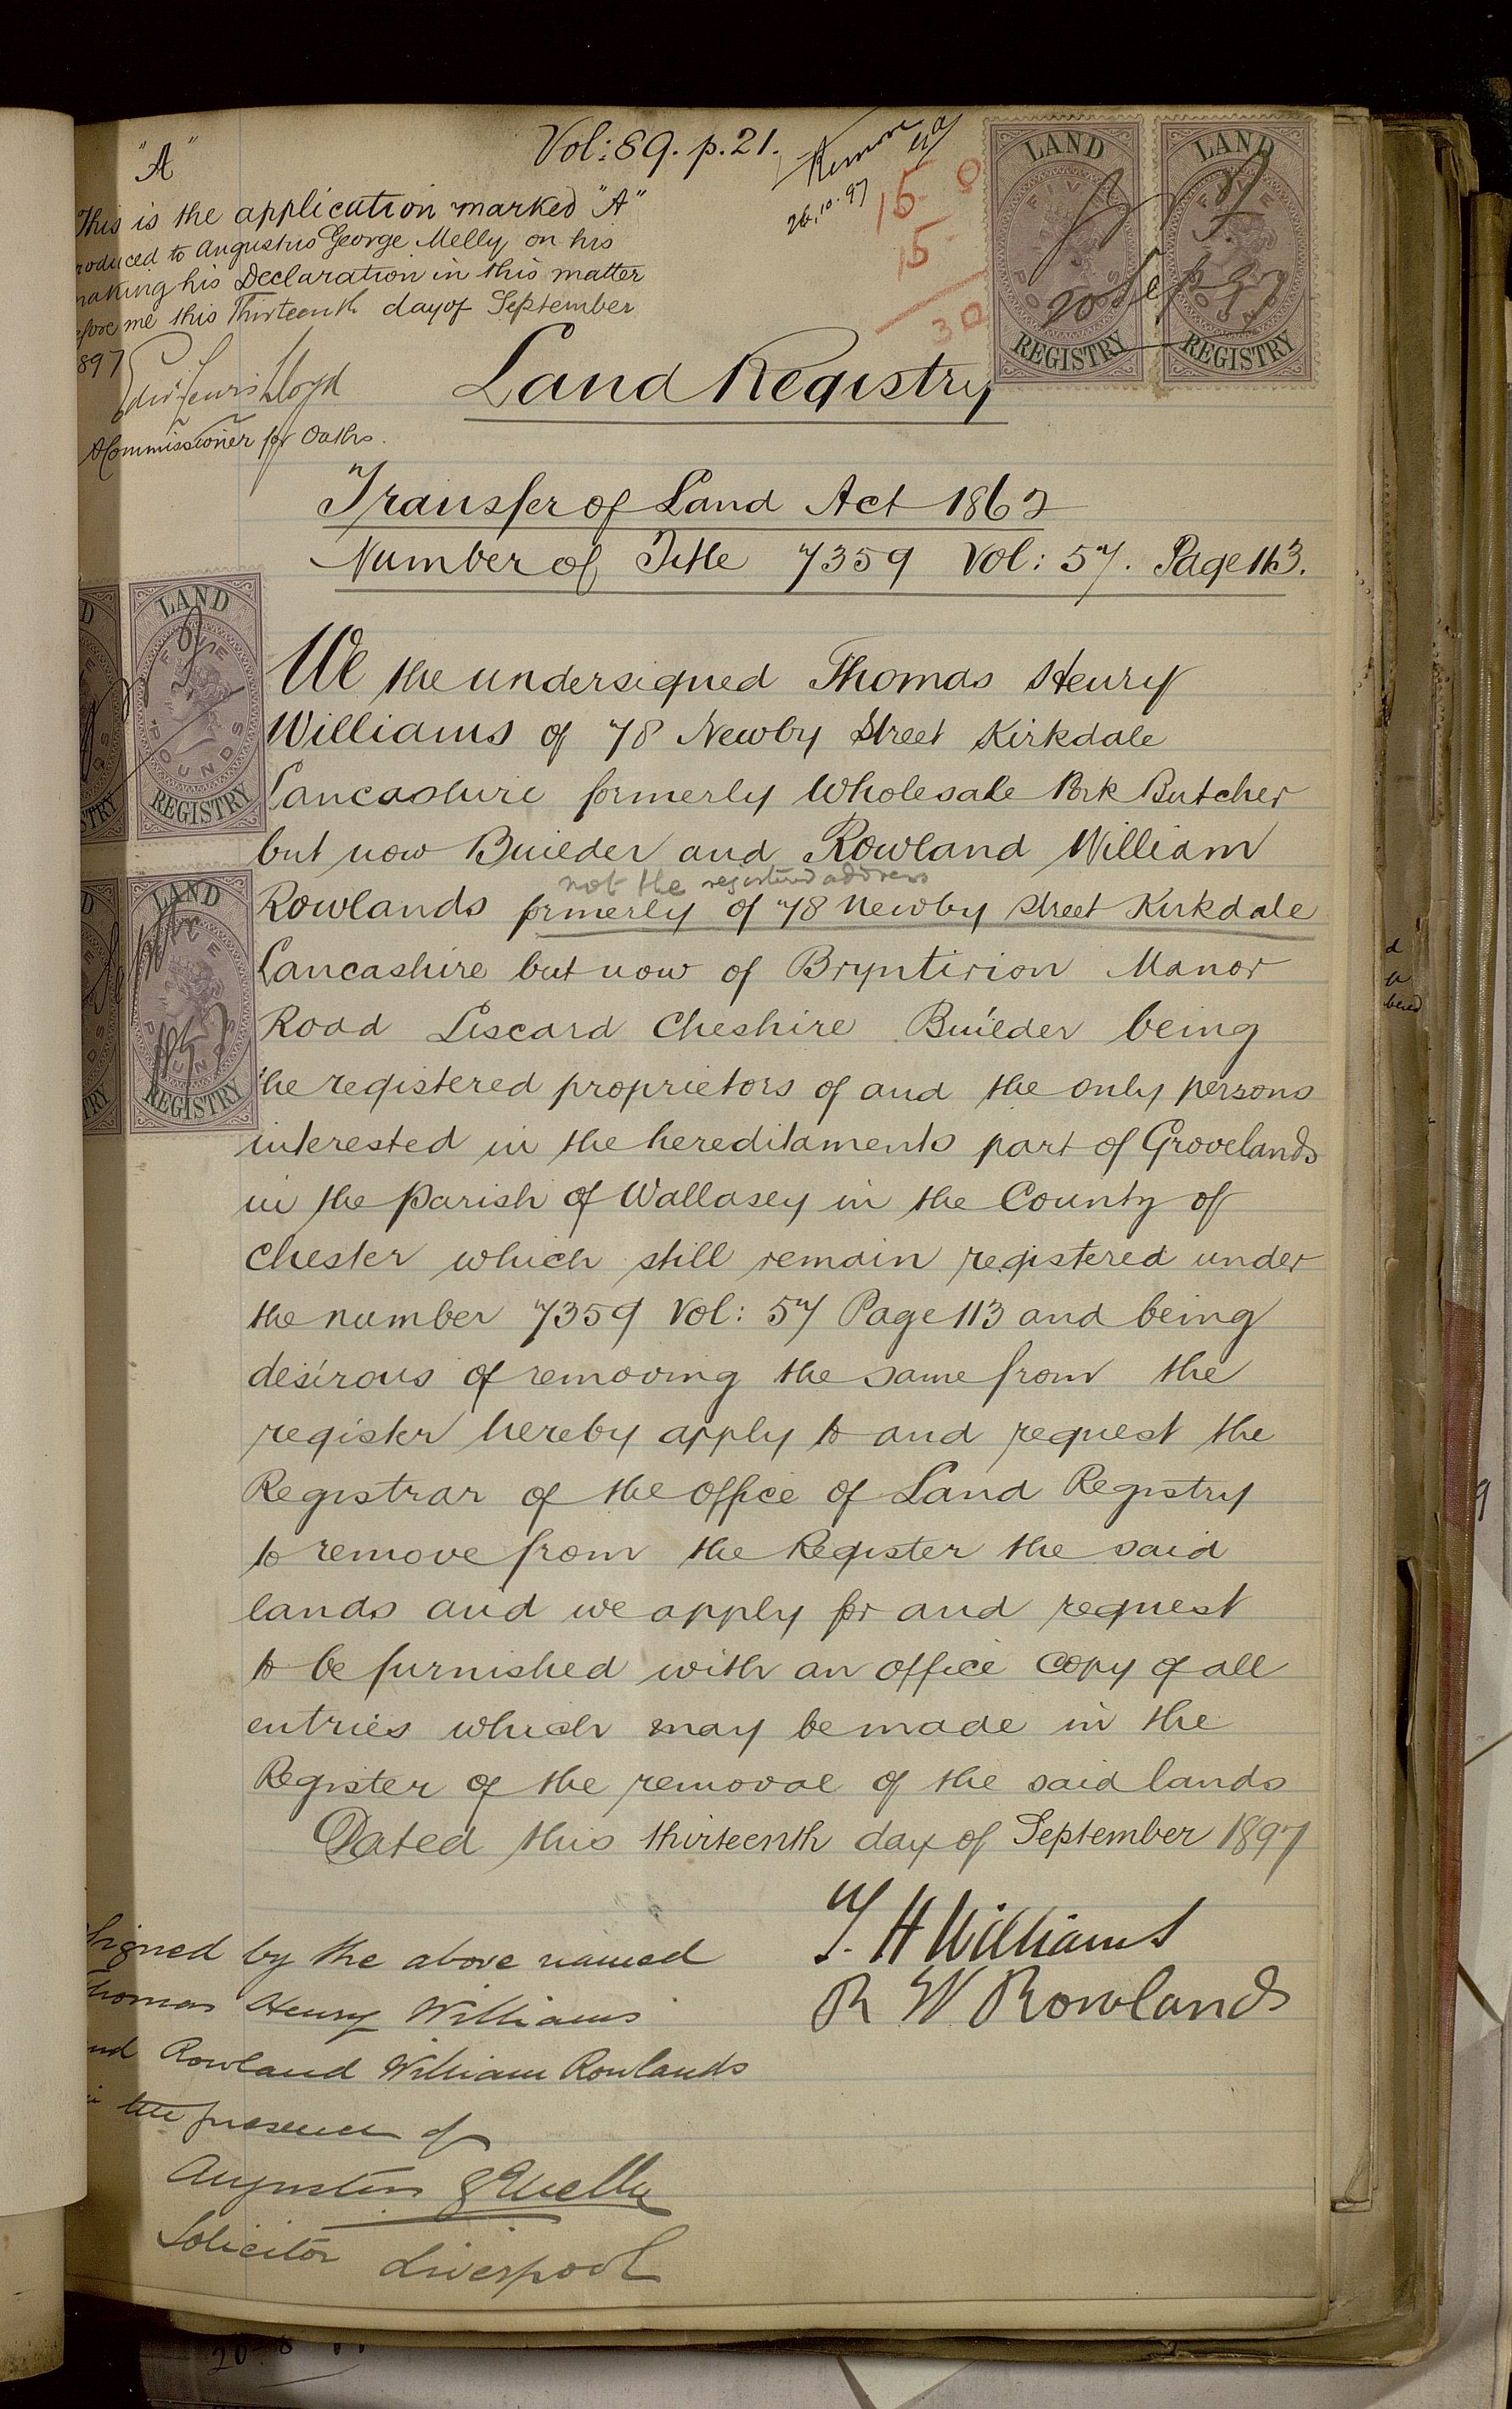 "A"
Vol: 89. p. 21.
26.10.97
15 0
15
30
This is the application marked "A"
roduced to Augustus George Melly on his
making his Declaration in this matter
efore me this Thirteenth day of September
897
Edwd Lewis Lloyd
A Commissioner for Oaths.
LAND
FIVE
POUNDS
REGISTRY
LAND
FIVE
POUNDS
REGISTRY
20 Sep 97
Land Registry
Transfer of Land Act 1862
Number of Title 7359 Vol: 57. Page 113.
LAND
FIVE
POUNDS
REGISTRY
LAND
FIVE
POUNDS
REGISTRY
1897
We the undersigned Thomas Henry
Williams of 78 Newby Street Kirkdale
Lancashire formerly Wholesale Pork Butcher
but now Builder and Rowland William
not the registered address
Rowlands formerly of 78 Newby Street Kirkdale
Lancashire but now of Bryntirion Manor
Road Liscard Cheshire Builder being
the registered proprietors of and the only persons
interested in the hereditaments part of Grovelands
in the Parish of Wallasey in the County of
Chester which still remain registered under
the number 7359 Vol: 57 Page 113 and being
desirous of removing the same from the
register hereby apply to and request the
Registrar of the office of Land Registry
to remove from the Register the said
lands and we apply for and request
to be furnished with an office copy of all
entries which may be made in the
Register of the removal of the said lands
Dated this thirteenth day of September 1897
T. H Williams
R W Rowlands
Signed by the above named
Thomas Henry Williams
nd Rowland William Rowlands
in the presence of
Augustus G Melly
Solicitor Liverpool